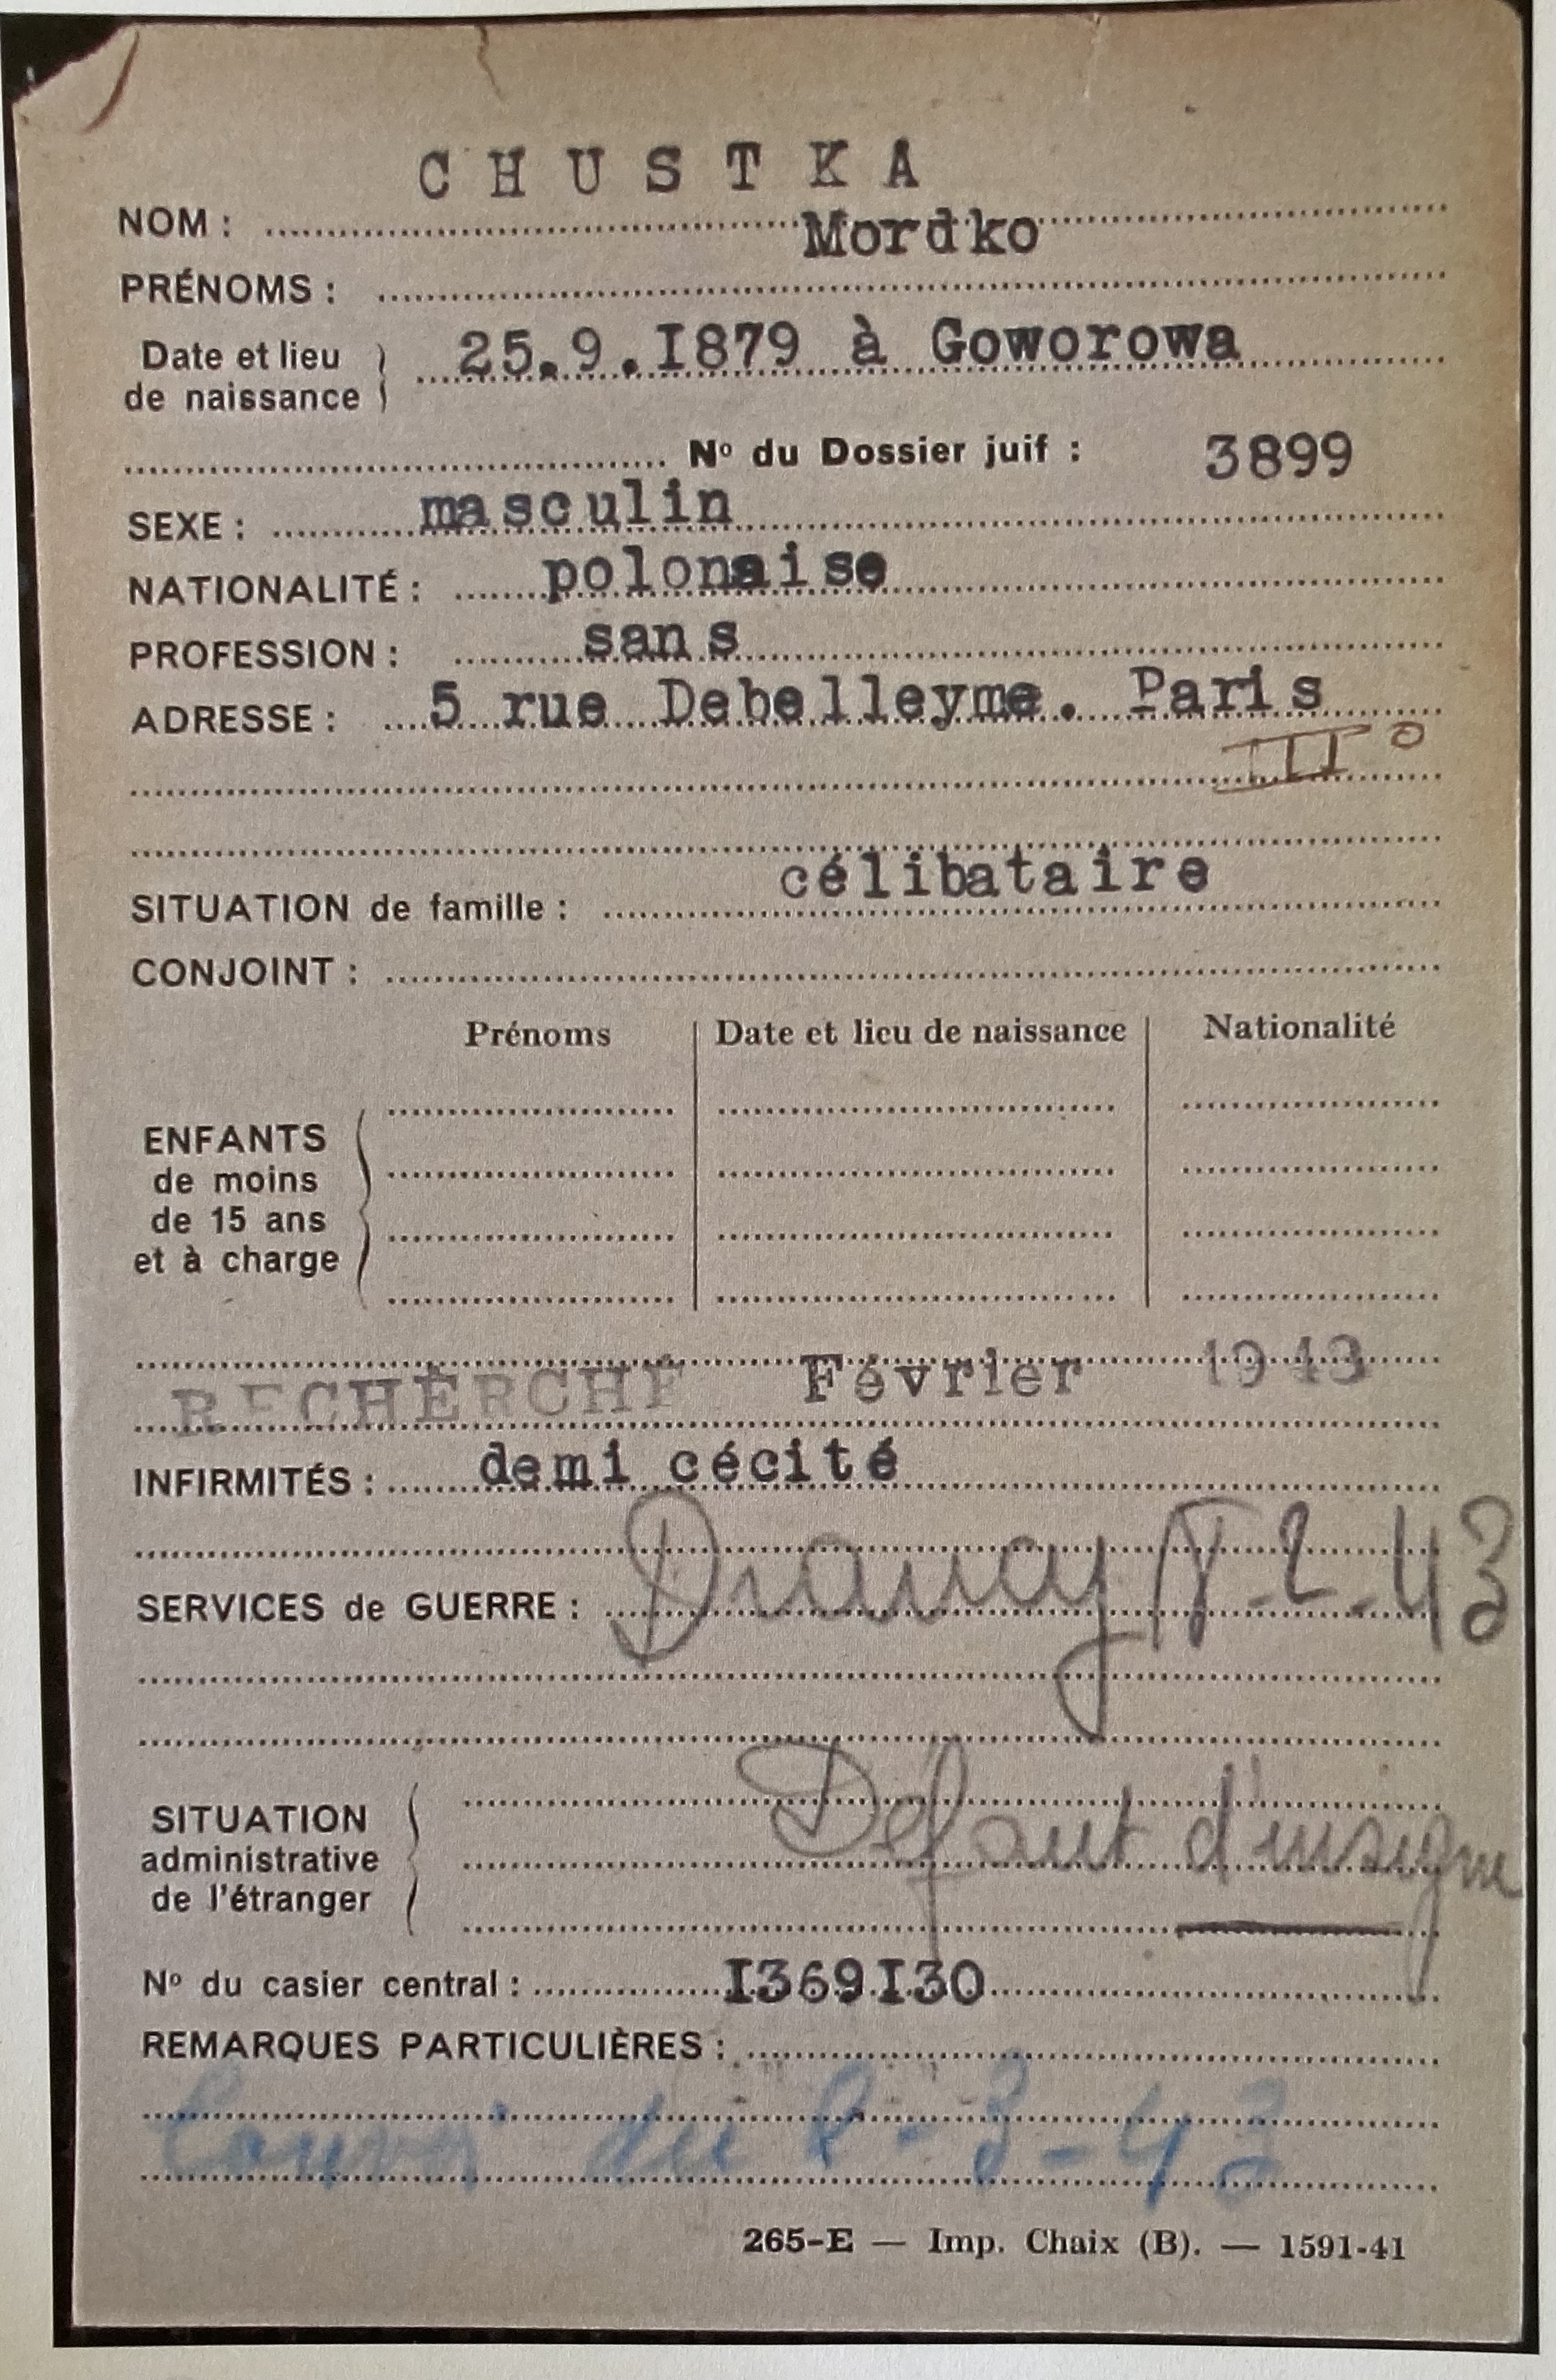 CHUSTKA
NOM :
Mordko
PRÉNOMS :
Date et lieu de naissance 25.9.I879 à Goworowa
Nº du Dossier juif : 3899
SEXE : masculin
NATIONALITÉ : polonaise
PROFESSION : sans
ADRESSE : 5 rue Debelleyme. Paris
III º
célibataire
SITUATION de famille :
CONJOINT :
Prénoms Date et lieu de naissance Nationalité
ENFANTS
de moins
de 15 ans
et à charge
RECHERCHE Février 1943
INFIRMITÉS : demi cécité
Drancy -2-43
SERVICES de GUERRE :
Defaut d'insigne
SITUATION
administrative
de l'étranger
Nº du casier central : I369I30
REMARQUES PARTICULIÈRES :
du 2-3-43
265-E — Imp. Chaix (B). — 1591-41